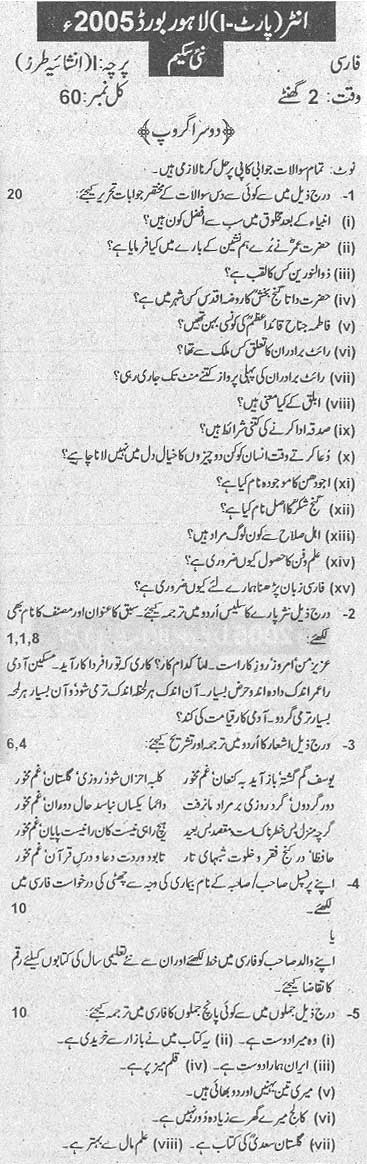 انٹر (پارٹ-I) لاہور بورڈ 2005ء
فارسی نئی سکیم پرچہ: I (انشائیہ طرز)
وقت: 2 گھنٹے کل نمبر: 60
﴿دوسرا گروپ﴾
نوٹ: تمام سوالات جوابی کاپی پر حل کرنا لازمی ہیں۔
1- درج ذیل میں سے کوئی سے دس سوالات کے مختصر جوابات تحریر کیجئے: 20
(i) انبیاء کے بعد مخلوق میں سب سے افضل کون ہیں؟
(ii) حضرت عمرؓ نے بُرے ہم نشین کے بارے میں کیا فرمایا ہے؟
(iii) ذوالنورین کس کا لقب ہے؟
(iv) حضرت داتا گنج بخشؒ کا روضہ اقدس کس شہر میں ہے؟
(v) فاطمہ جناح قائداعظمؒ کی کونسی بہن تھیں؟
(vi) رائٹ برادران کا تعلق کس ملک سے تھا؟
(vii) رائٹ برادران کی پہلی پرواز کتنے منٹ تک جاری رہی؟
(viii) ابلق کے کیا معنی ہیں؟
(ix) صدقہ ادا کرنے کی کتنی شرائط ہیں؟
(x) دُعا کرتے وقت انسان کو کن دو چیزوں کا خیال دل میں نہیں لانا چاہیے؟
(xi) اجودھن کا موجودہ نام کیا ہے؟
(xii) گنج شکرؒ کا اصل نام کیا ہے؟
(xiii) اہل صلاح سے کون لوگ مراد ہیں؟
(xiv) علم و فن کا حصول کیوں ضروری ہے؟
(xv) فارسی زبان پڑھنا ہمارے لئے کیوں ضروری ہے؟
2- درج ذیل نثر پارے کا سلیس اُردو میں ترجمہ کیجئے۔ سبق کا عنوان اور مصنف کا نام بھی
لکھئے: 1,1,8
عزیز من امروز روزِ کار است۔ لما کدام کار؟ کاری کہ تو را فردا کار آید۔ مسکین آدمی
را عمر اندک داده اند و حرض بسیار۔ آن اندک ہر لحظہ اندک تر می شود و آن بسیار ہر لحظہ
بسیار تر می گردد۔ آدمی کار قیامت می کند؟
3- درج ذیل اشعار کا اُردو میں ترجمہ اور تشریح کیجئے: 6,4
یوسف گم گشتہ باز آید بہ کنعان غم مخور کلبہ احزاں شود روزی گلستان غم مخور
دور گردوں گر دو روزی بر مراد ما نرفت دائما یکساں نباسد حال دوراں غم مخور
گرچہ منزل بس خطرناک است مقصد بس بعید ہیچ راہی نیست کان را نیست پایان غم مخور
حافظا در کنج فقر و خلوت شبہای تار تا بود وردت دعا و درس قرآں غم مخور
4- اپنے پرنسپل صاحب/صاحبہ کے نام بیماری کی وجہ سے چھٹی کی درخواست فارسی میں
لکھئے۔ 10
یا
اپنے والد صاحب کو فارسی میں خط لکھئے اور ان سے نئے تعلیمی سال کی کتابوں کیلئے رقم
کا تقاضا کیجئے۔
5- درج ذیل جملوں میں سے کوئی پانچ جملوں کا فارسی میں ترجمہ کیجئے: 10
(i) وہ میرا دوست ہے۔ (ii) یہ کتاب میں نے بازار سے خریدی ہے۔
(iii) ایران ہمارا دوست ہے۔ (iv) قلم میز پر ہے۔
(v) میری تین بہنیں اور دو بھائی ہیں۔
(vi) کالج میرے گھر سے زیادہ دُور نہیں ہے۔
(vii) گلستان سعدیؒ کی کتاب ہے۔ (viii) علم مال سے بہتر ہے۔